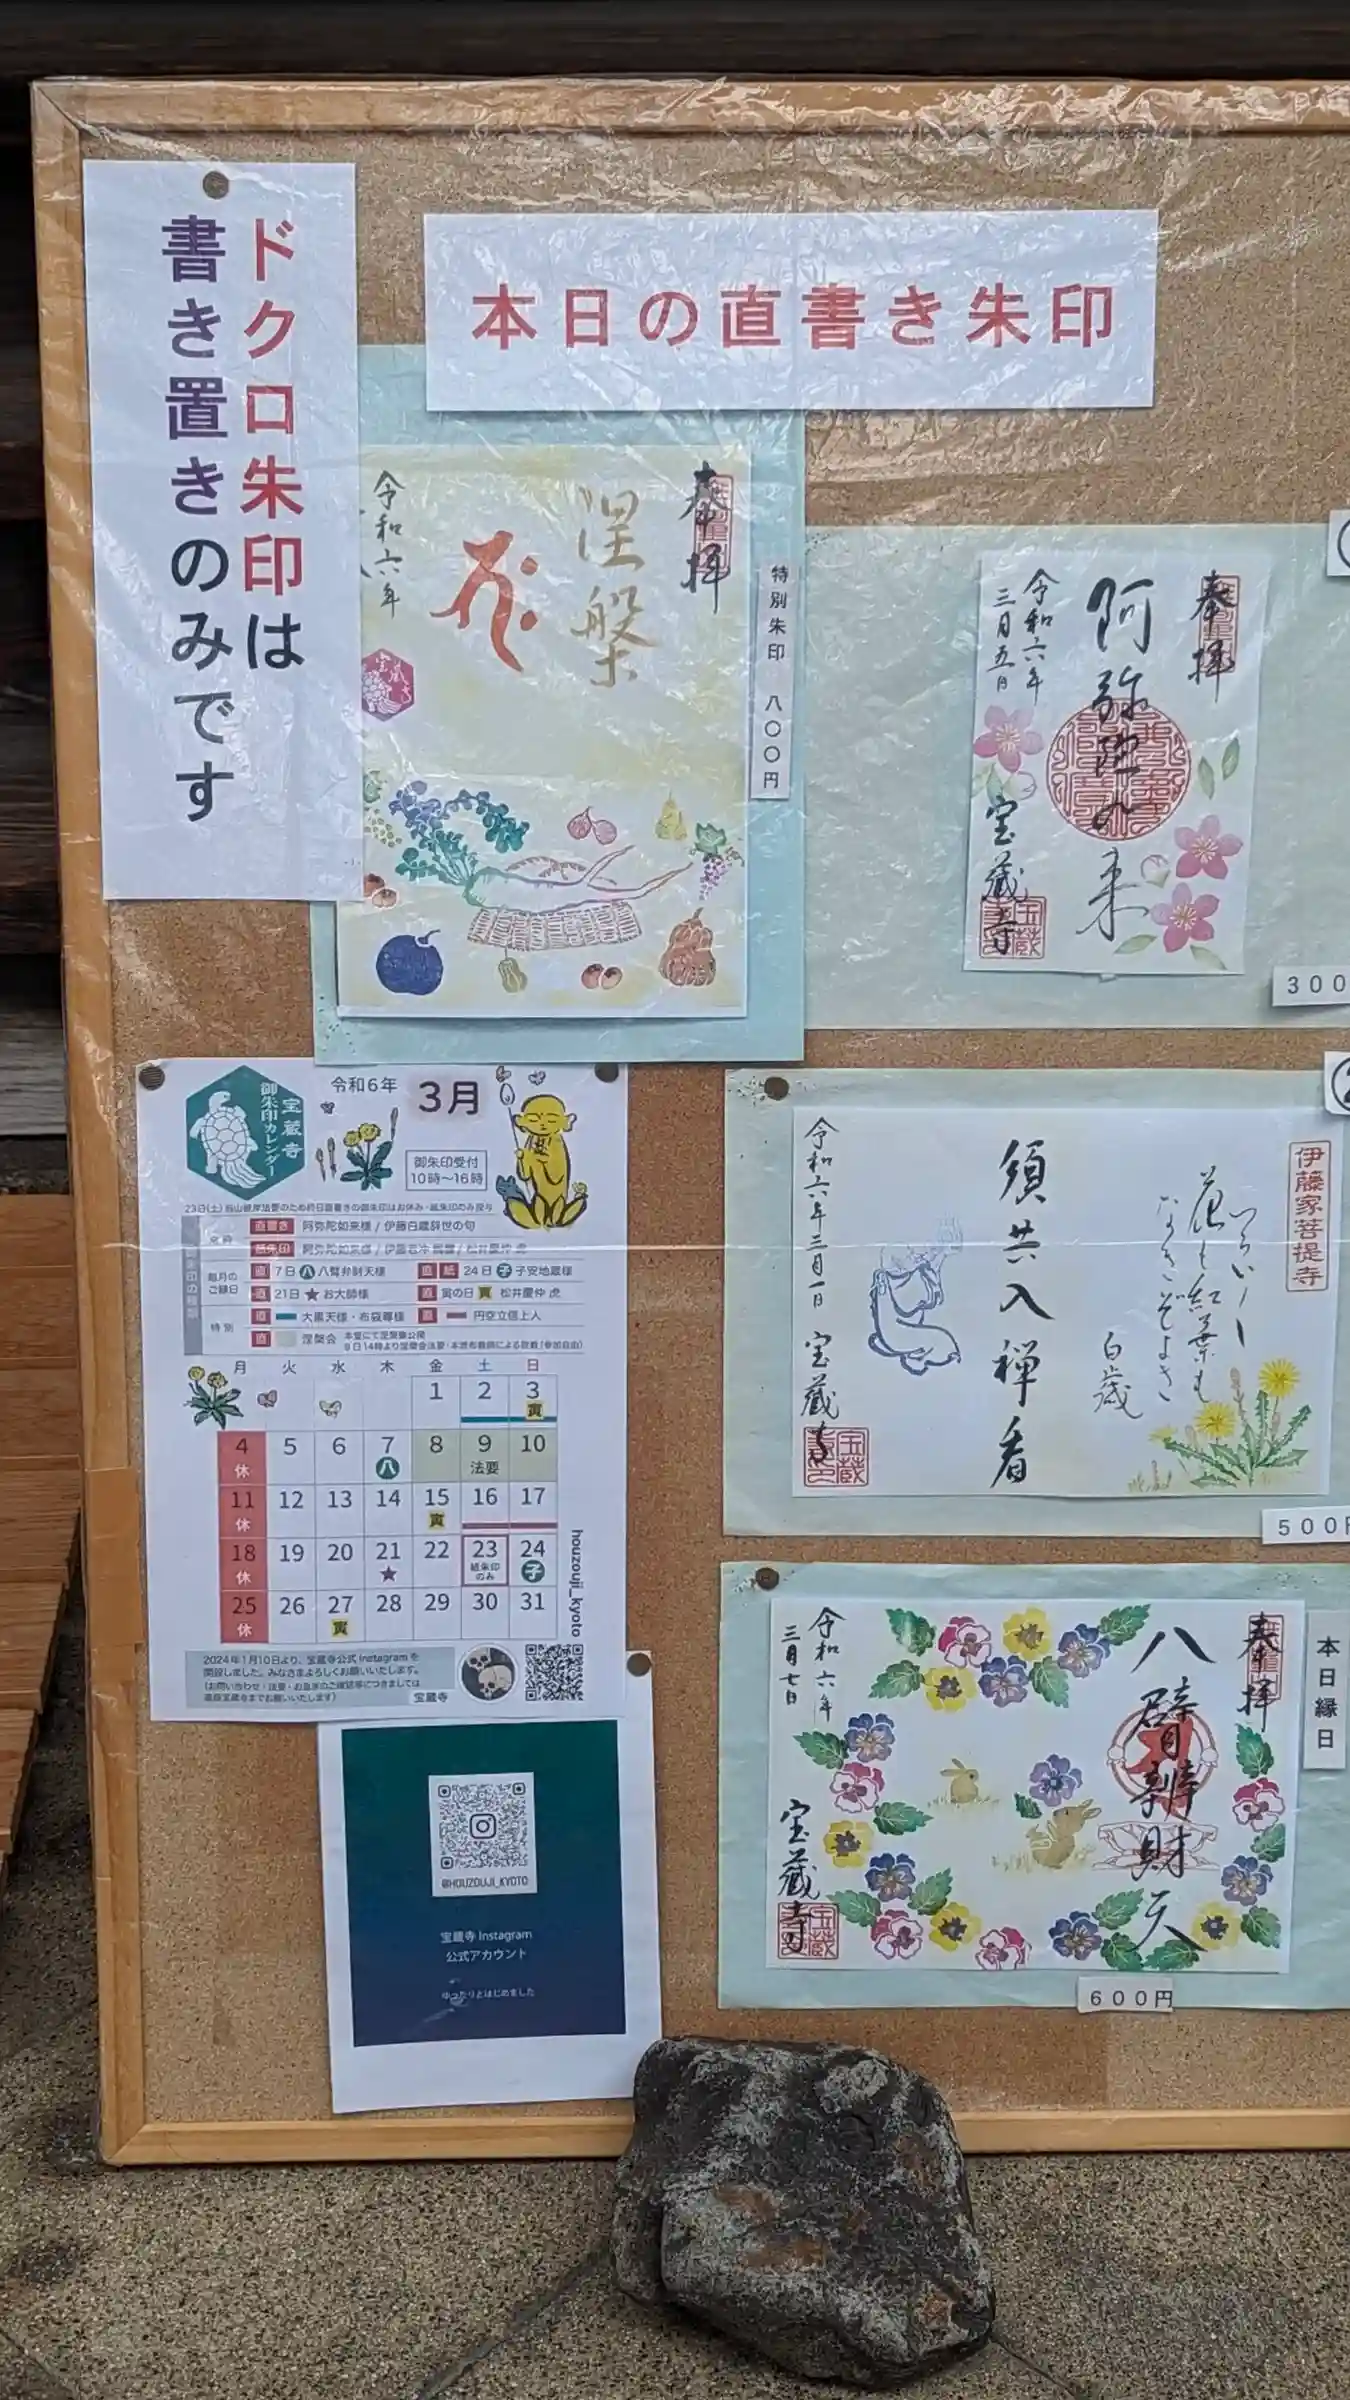 ドクロ朱印は
書き置きのみです
本日の直書き朱印
奉拝
涅槃
令和六年
特別朱印 八〇〇円
奉拝
阿弥陀如来
令和六年
三月五日
宝蔵寺
300
令和6年 3月
宝蔵寺
御朱印カレンダー
御朱印受付
10時〜16時
直書き 阿弥陀如来様 / 伊藤白歳辞世の句
毎月の
ご縁日
直 7日 八 八臂弁財天様
直 紙 24日 子 子安地蔵様
直 21日 ★ お大師様
直 寅の日 寅 松井慶仲 虎
特別
直 大黒天様・布袋尊様
直 円空立信上人
直 涅槃会
月 火 水 木 金 土 日
1 2 3 寅
4 休 5 6 7 八 8 9 法要 10
11 休 12 13 14 15 寅 16 17
18 休 19 20 21 ★ 22 23 紙朱印のみ 24 子
25 休 26 27 寅 28 29 30 31
houzouji_kyoto
2024年1月10日より、宝蔵寺公式Instagramを
開設しました。みなさまよろしくお願いいたします。
宝蔵寺
@HOUZOUJI_KYOTO
宝蔵寺 Instagram
公式アカウント
ゆったりとはじめました
伊藤家菩提寺
花も紅葉も
白歳
須共入禅看
令和六年三月一日 宝蔵寺
500円
本日縁日
奉拝
八臂辨財天
令和六年
三月七日
宝蔵寺
600円